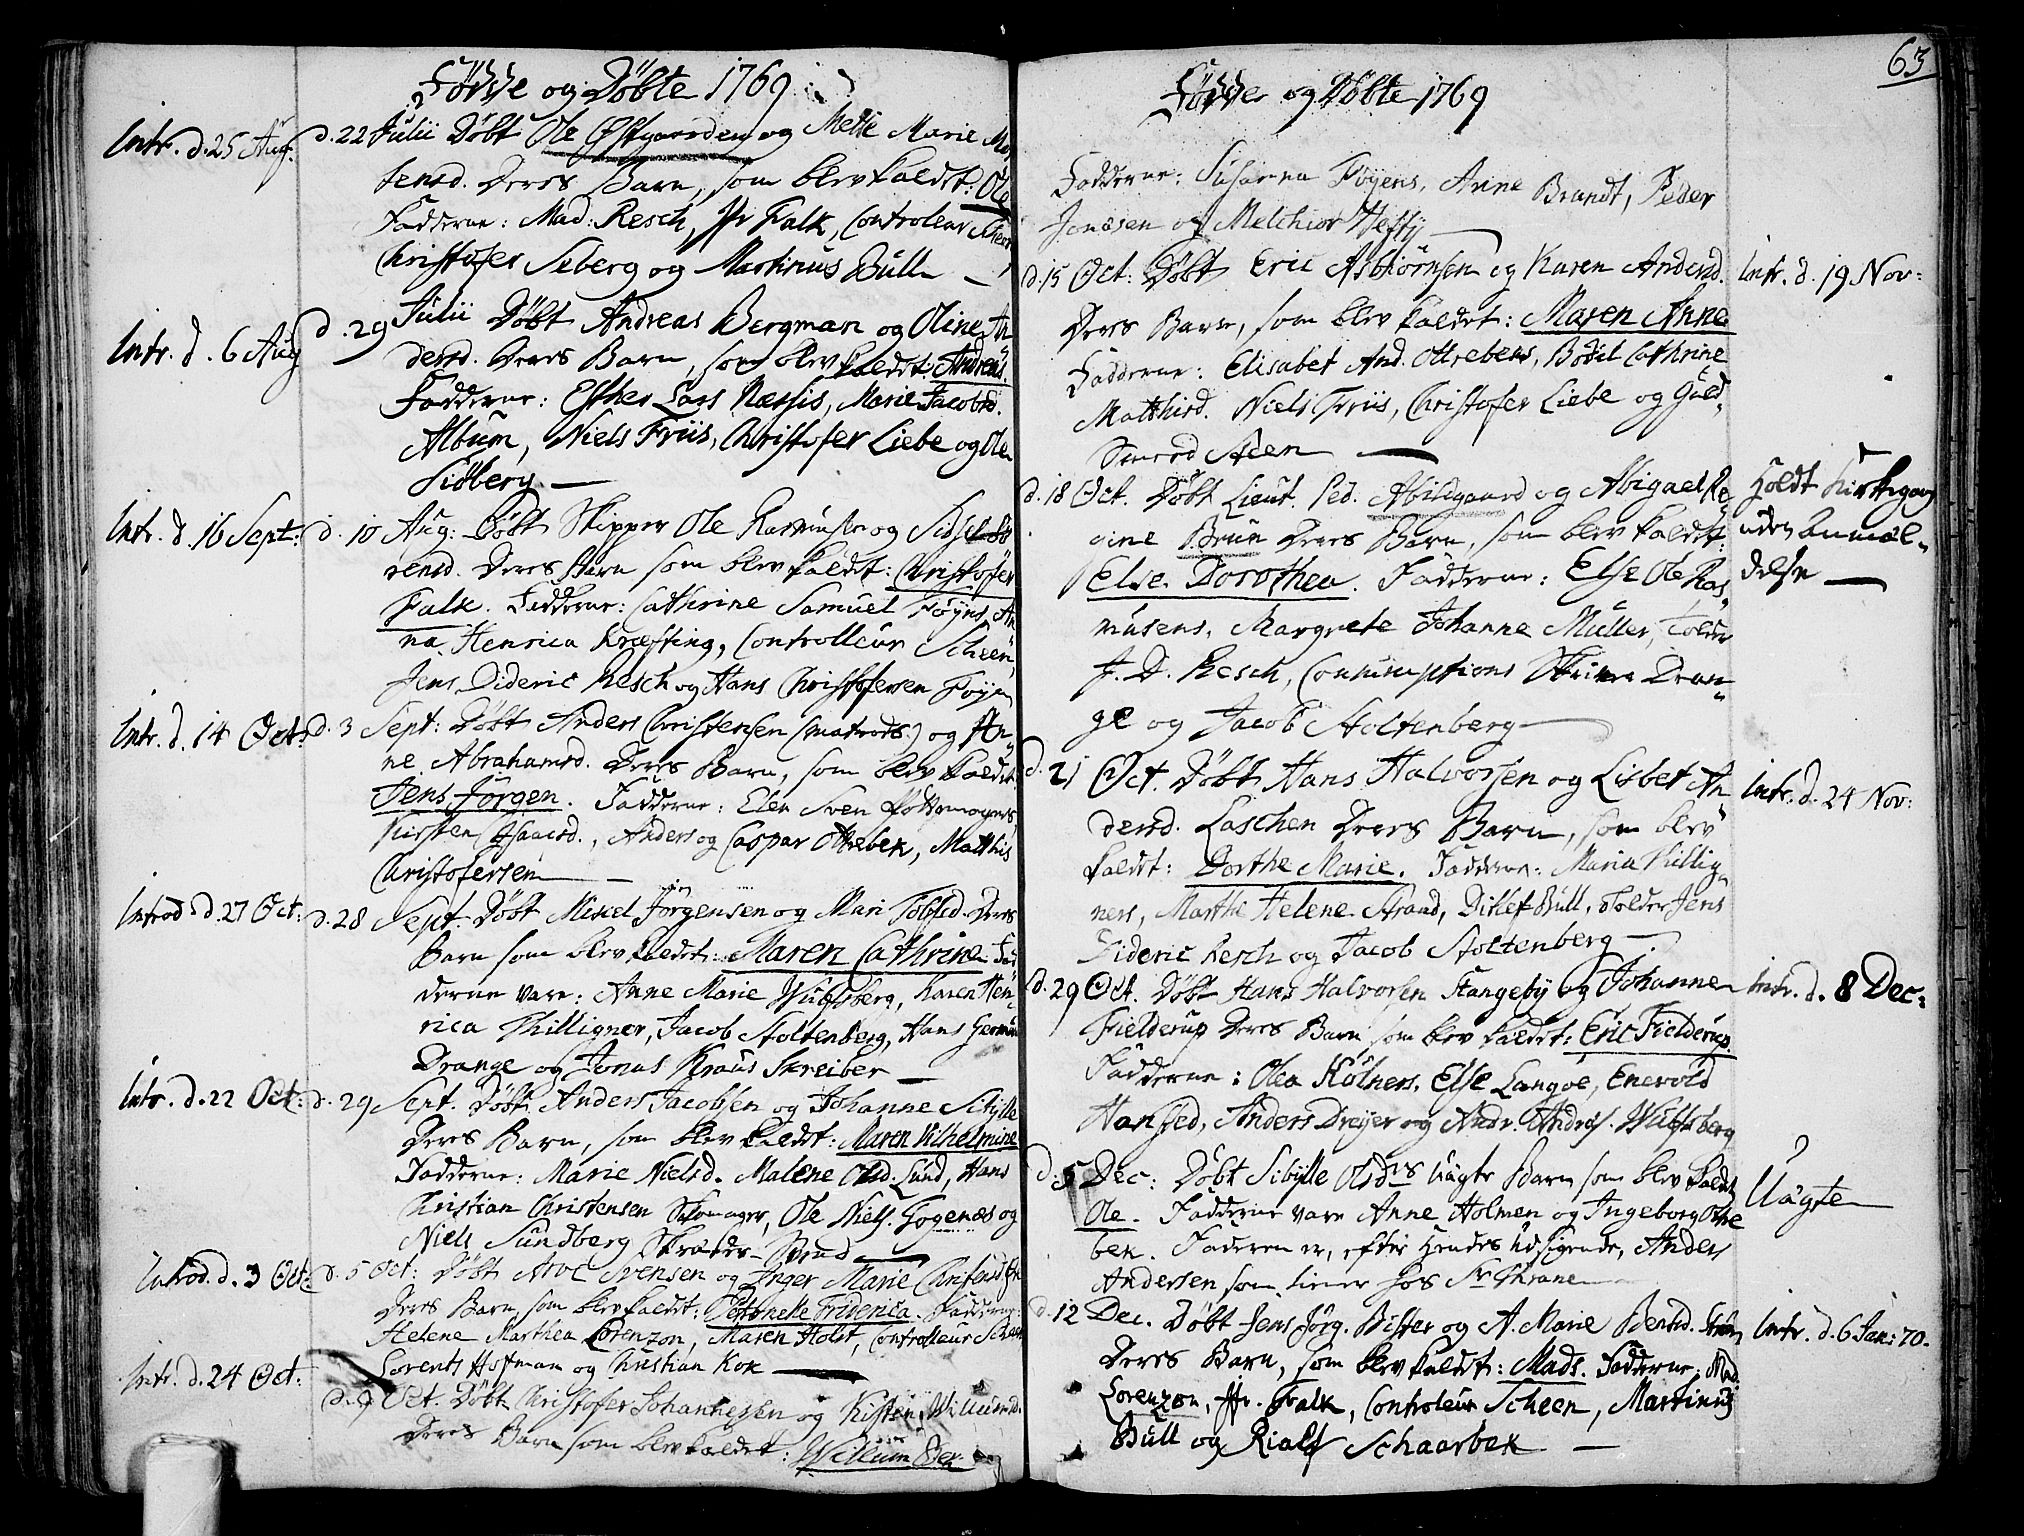 Fødde og Døbte 1769
Intr. d. 25 Aug. d. 22 Julii Døbt Ole Østgaarden og Mette Marie Mor
tensd. Deres Barn, som blev kaldet: Ole
Fadderne: Mad: Resch, Hr Falk, Controleur Scheen
Christofer Seberg og Martinus Bull
Intr. d. 6 Aug d. 29 Julii Døbt Andreas Bergman og Oline An
dersd. Deres Barn, som blev kaldet: Andreas.
Fadderne: Esther Lars Næssis, Marie Jacobsd.
Album, Niels Friis, Christofer Liebe og Ole
Siøberg.
Intr. d. 16 Sept: d. 10 Aug: Døbt Skipper Ole Rasmusen og Sidsel Sø
rensd. Deres Barn som blev kaldet: Christofer
Falk. Fadderne: Cathrine Samuel Føyns, An
na Henrica Kræfting, Controlleur Scheen,
Jens Dideric Resch og Hans Christofersen Føyn
Intr. d. 14 Oct: d. 3 Sept: Døbt Anders Christensen (Matrods.) og An
ne Abrahamsd. Deres Barn, som blev kaldet
Jens Jörgen. Fadderne: Elen Sven Pottemagers,
Kirsten Isaacsd., Anders og Caspar Ottrebek, Matthis
Christofersen
Introd d. 27 Oct: d. 28 Sept. Døbt Mickel Jörgensen og Mari Tolfsd. Deres
Barn som blev kaldet: Maren Cathrine Fad
derne vare: Anne Marie Wulfsberg, Karen Hen
rica Thilligner, Jacob Stoltenberg, Hans German
Drange og Jonas Kraus Skreiber
Intr. d. 22 Oct: d. 29 Sept. Døbt Anders Jacobsen og Johanne Sibylle
Deres Barn, som blev kaldet: Maren Vilhelmine
Fadderne: Marie Nielsd. Malene Olsd. Lund, Hans
Christian Christensen Skomager, Ole Niels. Gogenæs og
Niels Sundberg Skræder-Svend
Introd. d. 3 Oct: d. 5 Oct: Døbt Arve Svensen og Inger Marie
Deres Barn, som blev kaldet: Petronelle Friderica. Fadderne:
Helene Marthea Lorenzon, Maren Holst, Controlleur Scheen
Lorents Hofman og Christian Kok
Intr. d. 24 Oct: d. 9 Oct. Døbt Christofer Johannesen og Kisten Willumsd.
Deres Barn som blev kaldet: Willum
63
Fødder og Døbte 1769
Fadderne: Susanna Føyens, Anne Brandt, Peder
Jonæsen og Melchior Hefty
d. 15 Oct: Døbt Eric Asbiørnsen og Karen Andersd. Intr. d. 19 Nov:
Deres Barn, som blev kaldet: Maren Anne
Fadderne: Elisabet And. Ottrebeks, Bodil Cathrine
Matthisd. Niels Friis, Christofer Liebe og Guld-
Smed Aden
d. 18 Oct. Døbt Lieut. Ped. Abildgaard og Abigael Re- Holdt Kirkegang
gine Brun Deres Barn, som blev kaldet: uden anmel-
Else Dorothea. Fadderne: Else Ole Ras- delse
musens, Margrete Johanne Müller, Tolder
J. D. Resch, Consumptions Skriver Dran-
ge og Jacob Stoltenberg
d. 21 Oct. Døbt Hans Halvorsen og Lisbet An- Intr. d. 24 Nov:
dersd. Laschen Deres Barn, som blev
kaldet: Dorthe Marie. Fadderne: Maria Thillig-
ners, Marthe Helene Strand, Ditlef Bull, Tolder Jens
Dideric Resch og Jacob Stoltenberg
d. 29 Oct. Døbt Hans Halvorsen Stangeby og Johanne Intr. d. 8 Dec:
Fielderup Deres Barn som blev kaldet: Eric Fielderup.
Fadderne: Olea Kölners, Else Langoe, Enevold
Hansted, Anders Dreyer og Andr. Andrs. Wulfsberg
d. 5 Dec: Døbt Sibylle Olsdrs Uægte Barn som blev kaldet Uægte
Ole. Fadderne vare Anne Holmen og Ingeborg Ottre
bek. Faderen er, efter hendes Udsigende, Anders
Andersen som tiener hos Sr Thrane
d. 12 Dec. Døbt Jens Jörg. Bister og A. Marie Bentsd. Intr. d. 6 Jan: 70.
Deres Barn, som blev kaldet: Mads. Fadderne: Mad.
Lorenzon, Hr. Falk, Controleur Scheen, Martinus
Bull og Rialf Schaarbek